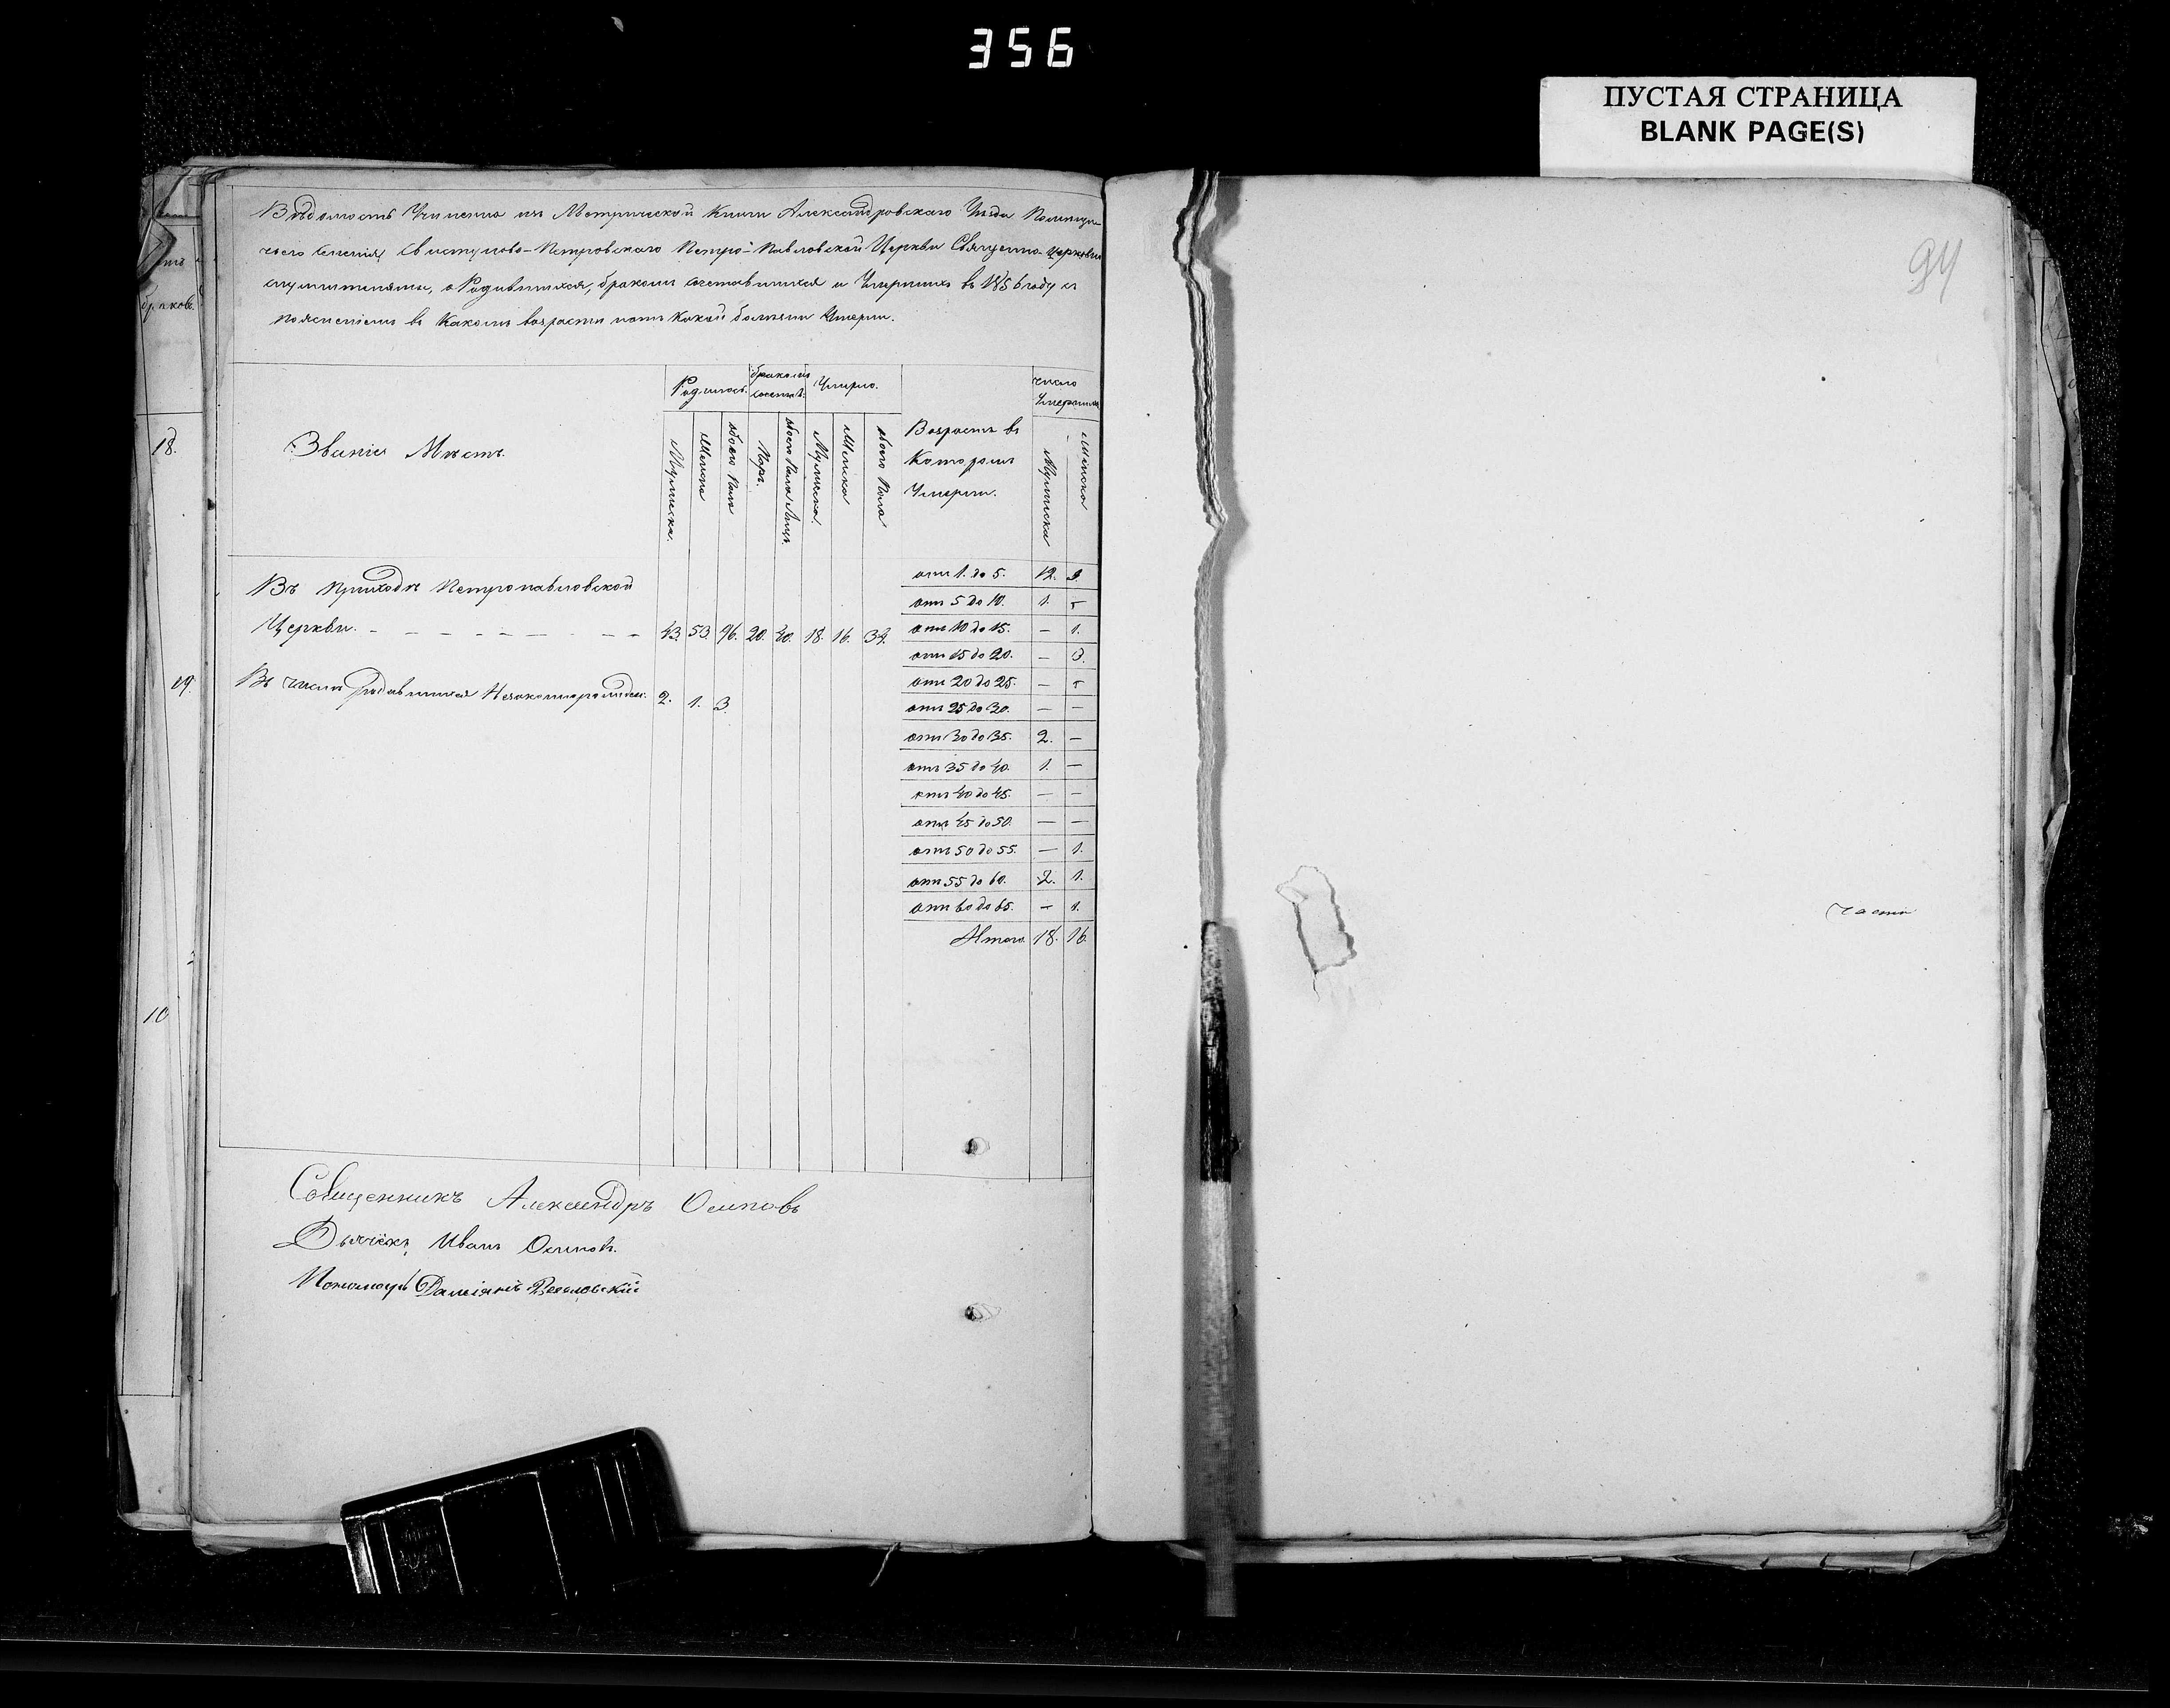 356
ПУСТАЯ СТРАНИЦА
BLANK PAGE(S)
94
браковъ
18.
19.
10
Вѣдомость Учинена изъ Метрической Книги Александровскаго Уѣзда
селенія, Свистуново-Петровскаго Петро-Павловской Церкви Священно-церковно
служителями, о Родившихся, бракомъ сочетавшихся и Умершихъ въ 1856 году съ
поясненіемъ въ какомъ возрастѣ и отъ какой болѣзни Умерли.
Званіе Мѣстъ.
Родилось.
бракомъ сочет:
Умерло.
Возрастъ въ Которомъ Умерли.
число Умершихъ
Мужеска.
Женска
обоего Пола
Паръ.
обоего Пола Лицъ.
Мужеска.
Женска
обоего Пола
Мужеска
Женска
Въ приходѣ Петропавловской
Церкви. – – – – – – – – 43. 53. 96. 20. 40. 18. 16. 34.
Въ числѣ родившихся Незаконнорожден. 2. 1. 3.
отъ 1. до 5. 12. 9.
отъ 5 до 10. 1. –
отъ 10 до 15. – 1.
отъ 15 до 20. – 3.
отъ 20 до 25. – –
отъ 25 до 30. – –
отъ 30 до 35. 2. –
отъ 35 до 40. 1. –
отъ 40 до 45. – –
отъ 45 до 50. – –
отъ 50 до 55. – 1.
отъ 55 до 60. 2. 1.
отъ 60 до 65. – 1.
Итого. 18. 16.
Священникъ Александръ Осиповъ
Дьячекъ Иванъ Осиповъ.
Пономарь Даміанъ
части